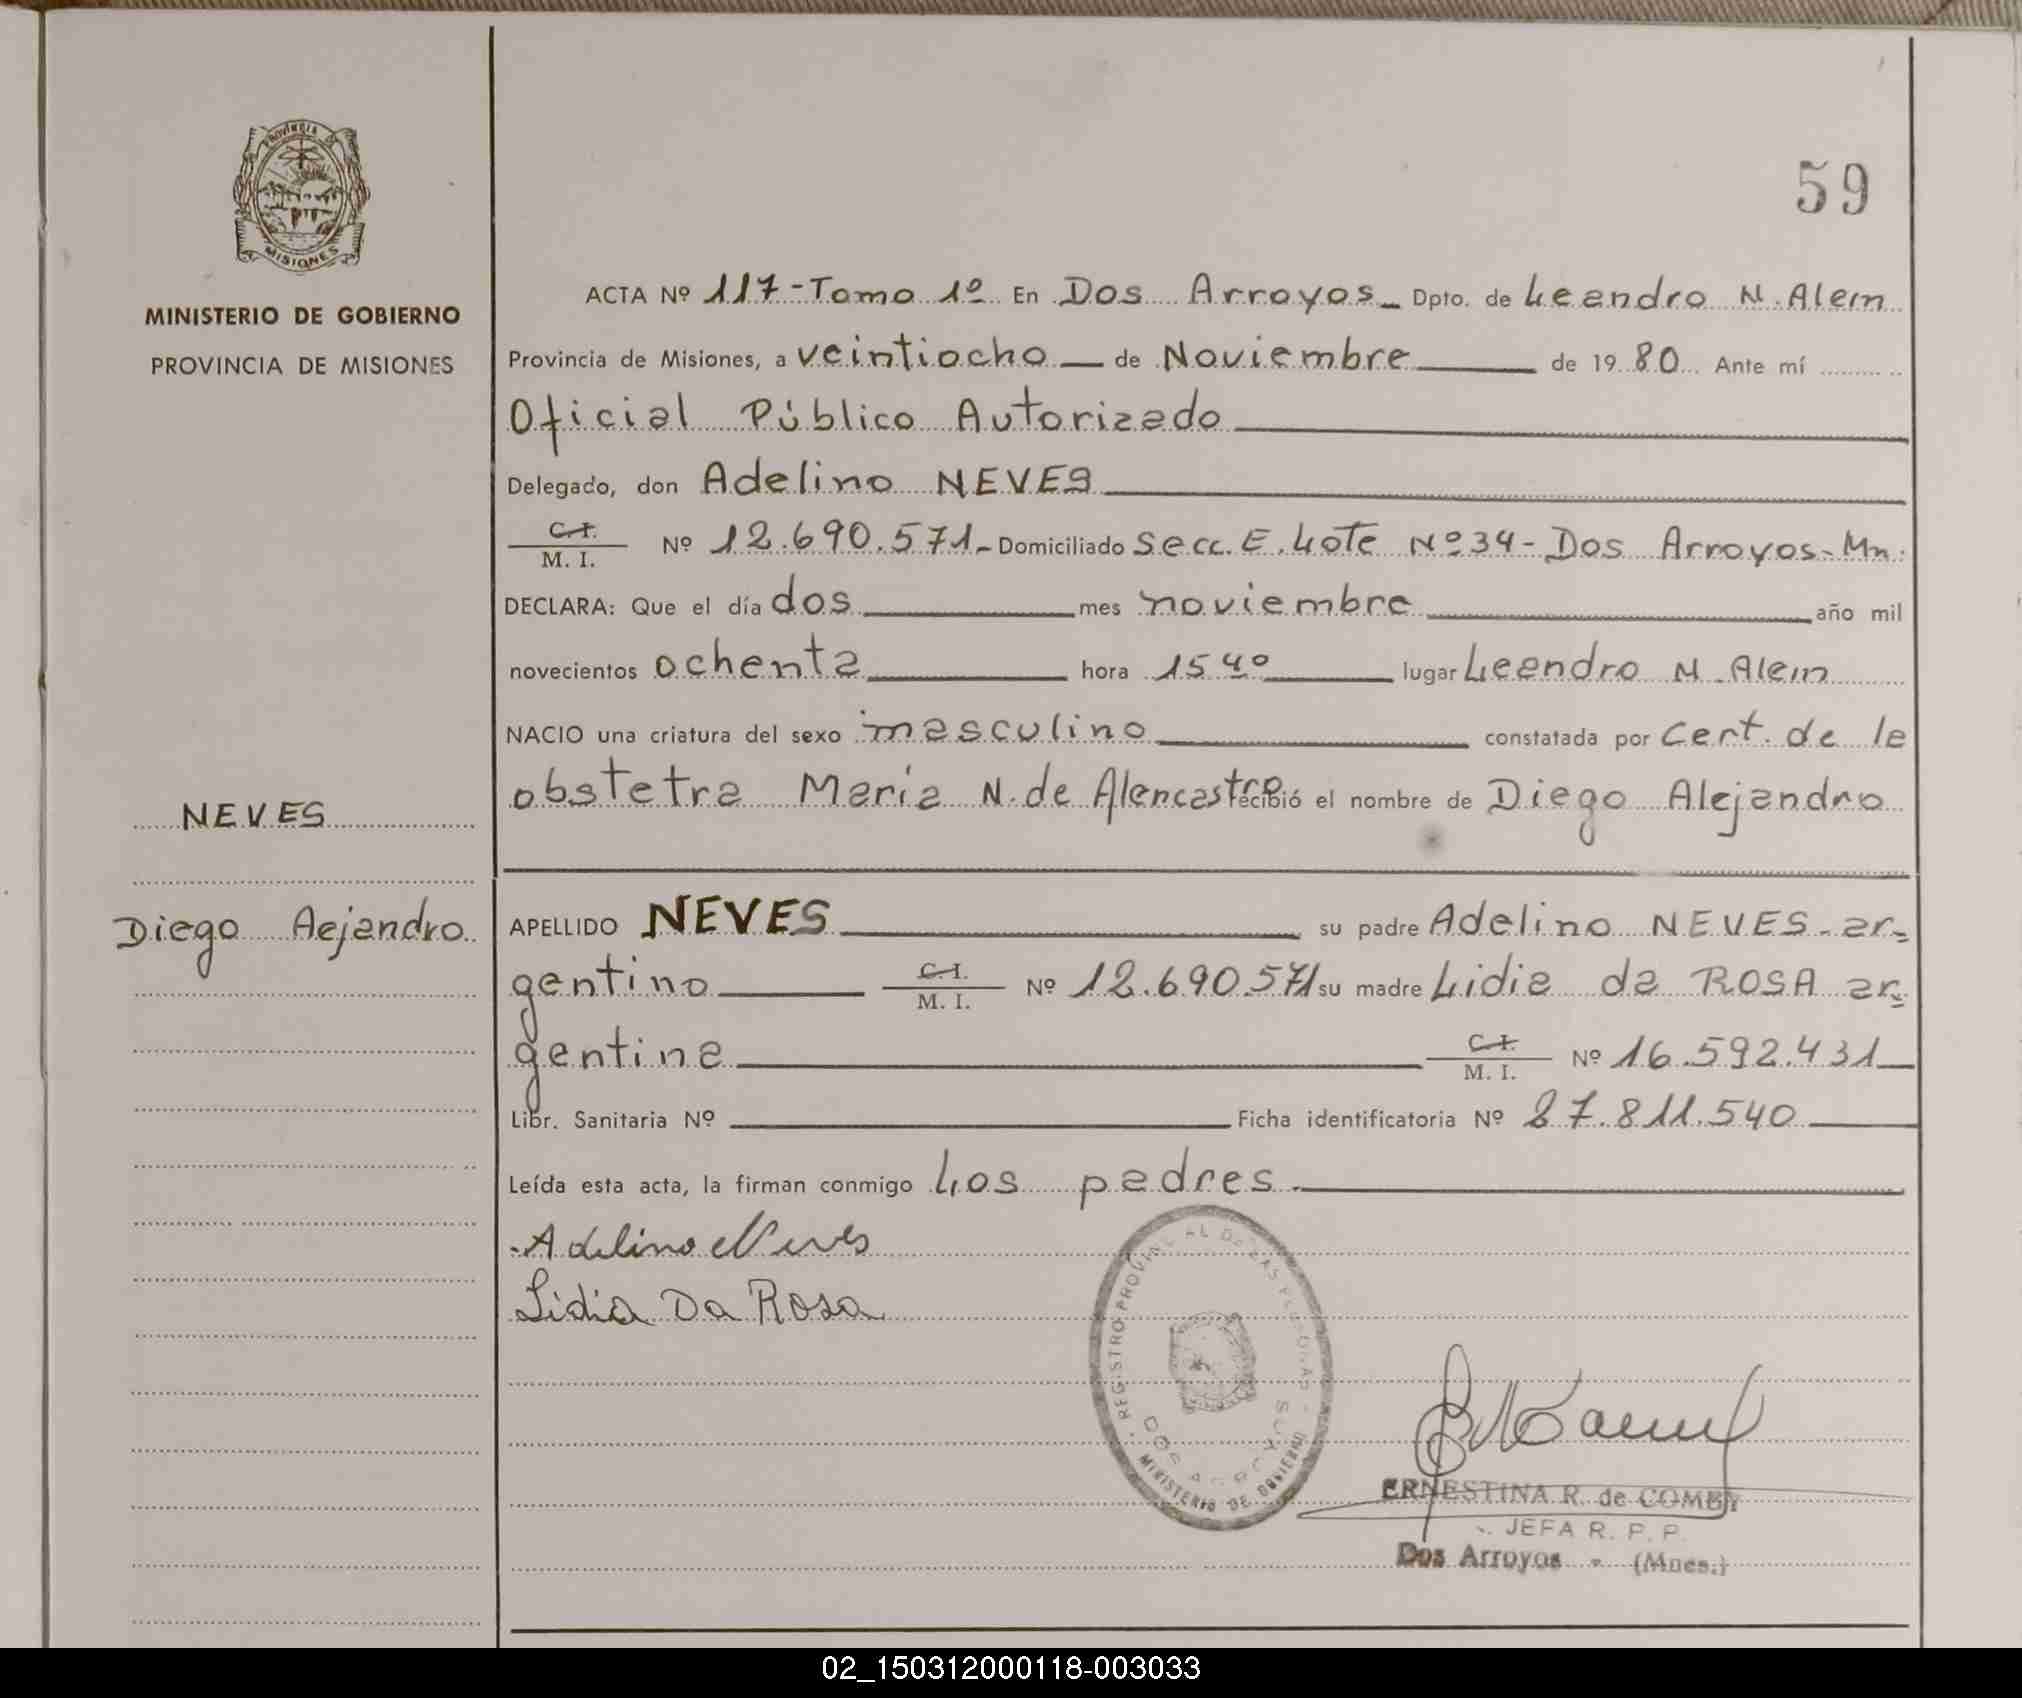 PROVINCIA DE
MISIONES
MINISTERIO DE GOBIERNO
PROVINCIA DE MISIONES
59
ACTA Nº 117-Tomo 1º En Dos Arroyos Dpto. de Leandro N. Alem
Provincia de Misiones, a veintiocho de Noviembre de 1980 Ante mí
Oficial Público Autorizado
Delegado, don Adelino NEVES
C.I.
M. I. Nº 12.690.571- Domiciliado Secc. E. Lote Nº 34 - Dos Arroyos - Mn.
DECLARA: Que el día dos mes noviembre año mil
novecientos ochenta hora 15 40 lugar Leandro N. Alem
NACIO una criatura del sexo masculino constatada por cert. de la
obstetra María N. de Alencastro recibió el nombre de Diego Alejandro
NEVES
Diego Aejandro
APELLIDO NEVES su padre Adelino NEVES - ar=
gentino C.I. M. I. Nº 12.690.571 su madre Lidia da ROSA ar=
gentina C.I. M. I. Nº 16.592.431
Libr. Sanitaria Nº Ficha identificatoria Nº 27.811.540
Leída esta acta, la firman conmigo Los padres.
Adelino Neves
Lidia Da Rosa
REGISTRO PROVINCIAL DE LAS PERSONAS
DOS ARROYOS
MINISTERIO DE GOBIERNO
ERNESTINA R. de COMBY
JEFA R. P. P.
Dos Arroyos - (Mnes.)
02_150312000118-003033